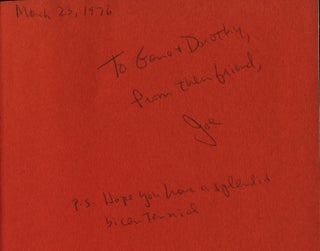 March 23, 1976
To Gene + Dorothy,
from their friend,
Joe
P.S. Hope you have a splendid
bicentennial